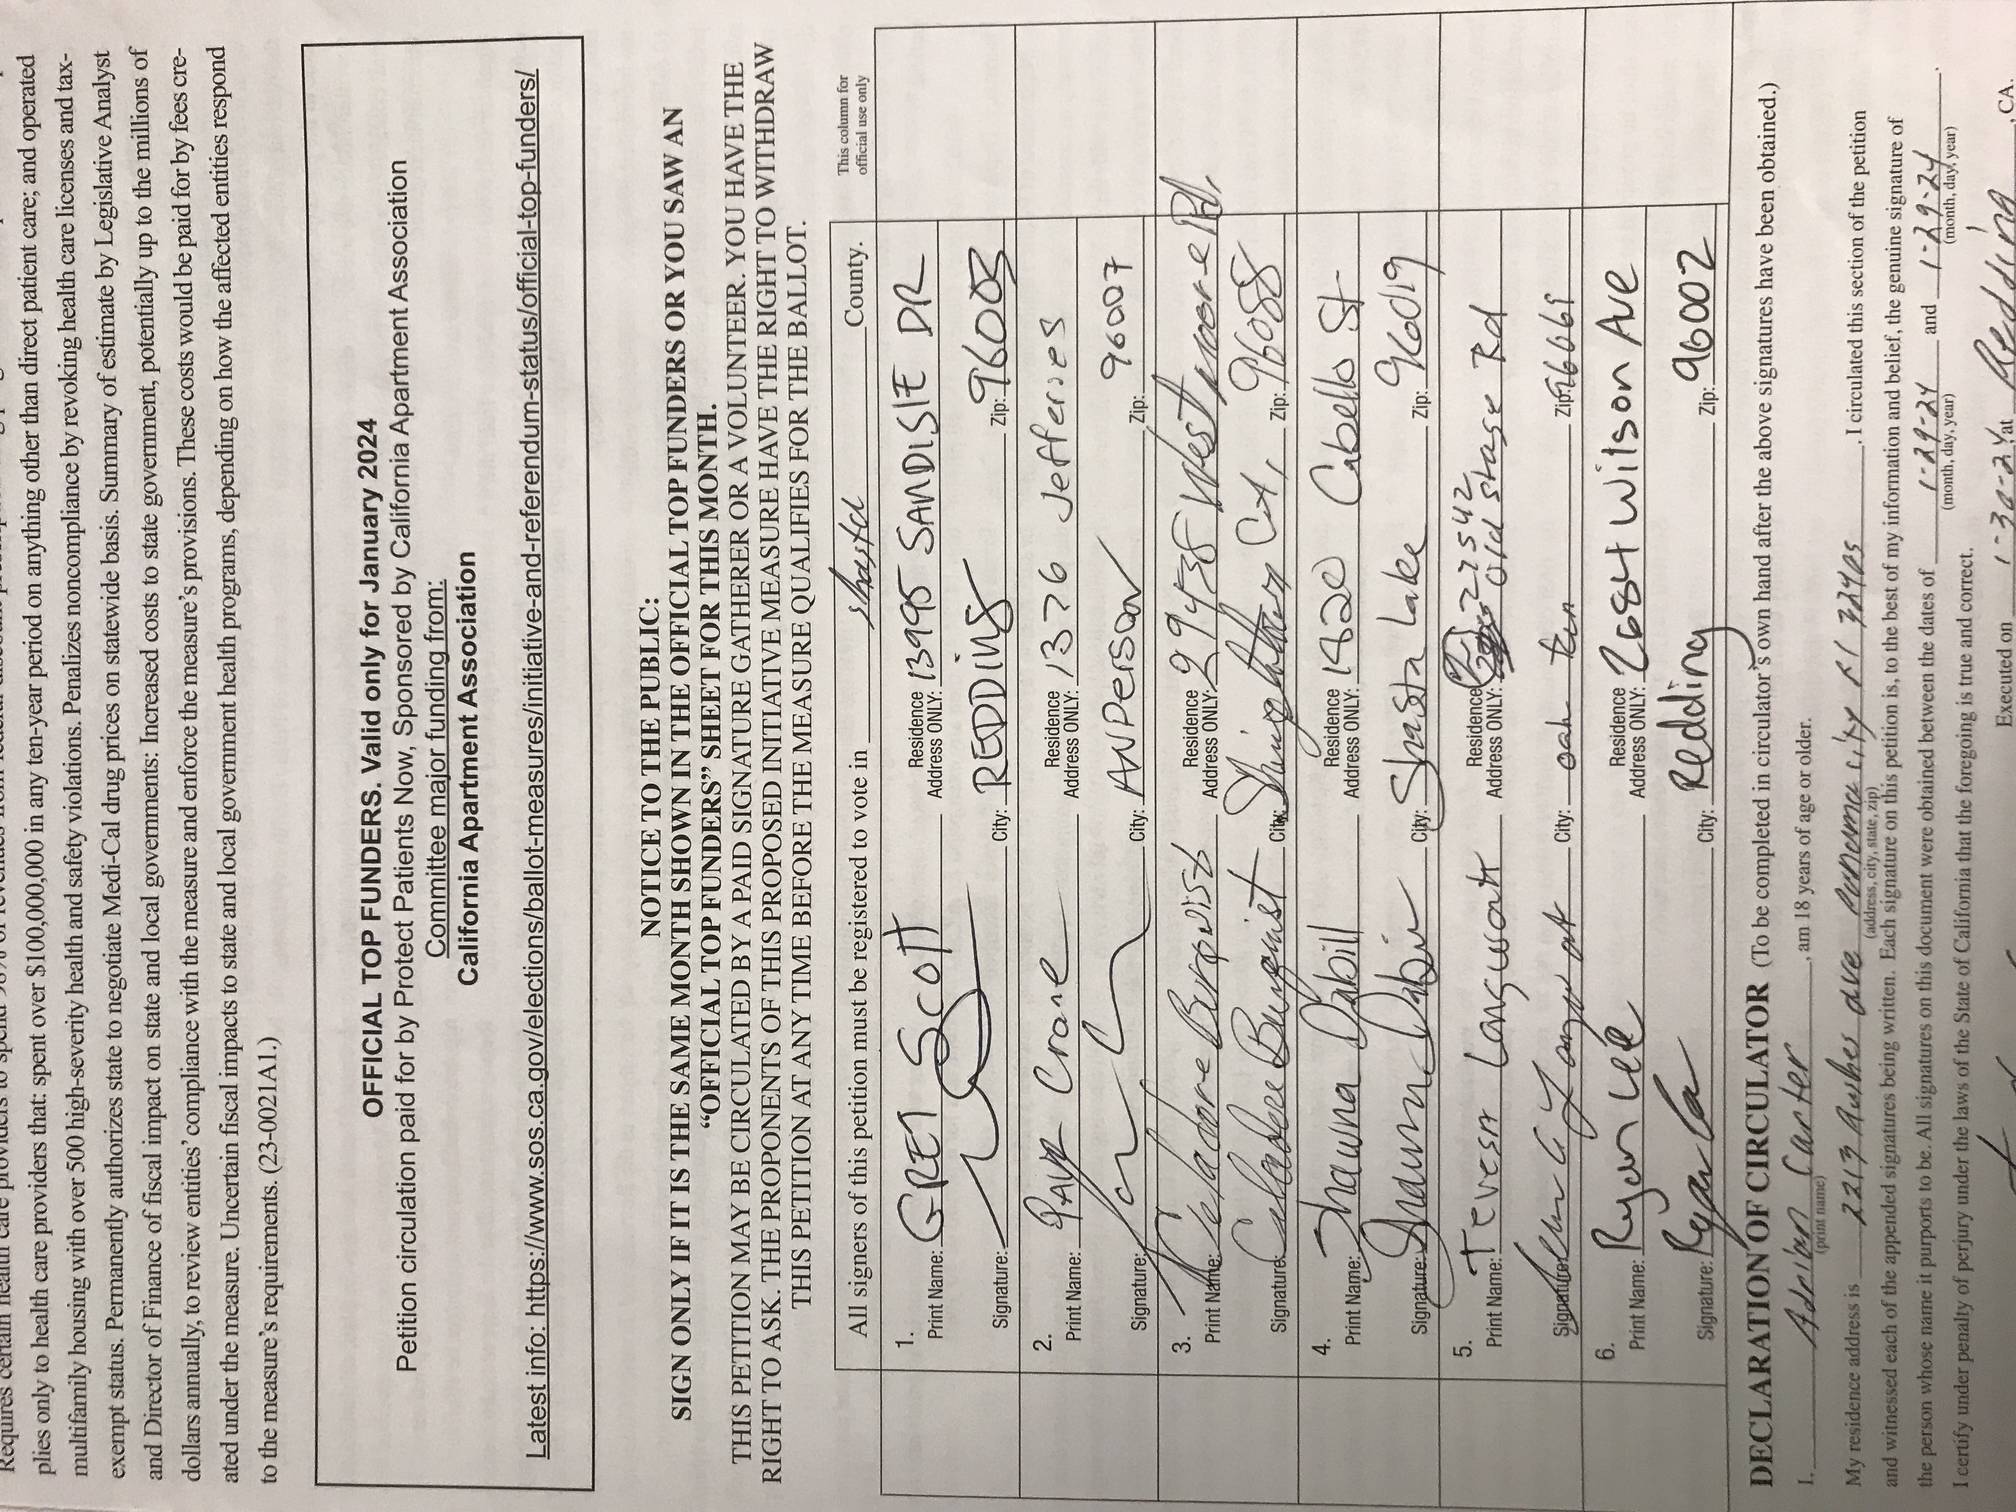 plies only to health care providers that: spent over $100,000,000 in any ten-year period on anything other than direct patient care; and operated
multifamily housing with over 500 high-severity health and safety violations. Penalizes noncompliance by revoking health care licenses and tax-
exempt status. Permanently authorizes state to negotiate Medi-Cal drug prices on statewide basis. Summary of estimate by Legislative Analyst
and Director of Finance of fiscal impact on state and local governments: Increased costs to state government, potentially up to the millions of
dollars annually, to review entities' compliance with the measure and enforce the measure's provisions. These costs would be paid for by fees cre-
ated under the measure. Uncertain fiscal impacts to state and local government health programs, depending on how the affected entities respond
to the measure's requirements. (23-0021A1.)
OFFICIAL TOP FUNDERS. Valid only for January 2024
Petition circulation paid for by Protect Patients Now, Sponsored by California Apartment Association
Committee major funding from:
California Apartment Association
Latest info: https://www.sos.ca.gov/elections/ballot-measures/initiative-and-referendum-status/official-top-funders/
NOTICE TO THE PUBLIC:
SIGN ONLY IF IT IS THE SAME MONTH SHOWN IN THE OFFICIAL TOP FUNDERS OR YOU SAW AN
“OFFICIAL TOP FUNDERS” SHEET FOR THIS MONTH.
THIS PETITION MAY BE CIRCULATED BY A PAID SIGNATURE GATHERER OR A VOLUNTEER. YOU HAVE THE
RIGHT TO ASK. THE PROPONENTS OF THIS PROPOSED INITIATIVE MEASURE HAVE THE RIGHT TO WITHDRAW
THIS PETITION AT ANY TIME BEFORE THE MEASURE QUALIFIES FOR THE BALLOT.
All signers of this petition must be registered to vote in Shasta County.
This column for
official use only
1.
Print Name: GREI SCOTT Residence Address ONLY: 13995 SANDISLE DR
Signature: City: REDDING Zip: 96003
2.
Print Name: Crane Residence Address ONLY: 1376 Jefferies
Signature: City: ANDerson Zip: 96007
3.
Print Name: Burquist Residence Address ONLY: 29438 Westmore Rd.
Signature: Burquist City: Shingletown CA, Zip: 96088
4.
Print Name: Shawna Dabill Residence Address ONLY: 1420 Cabello St
Signature: City: Shasta Lake Zip: 96019
5.
Print Name: Teresa Langwort Residence Address ONLY: 22542 Old Stage Rd
Signature: City: oak Run Zip:
6.
Print Name: Ryan Lee Residence Address ONLY: 2684 Wilson Ave
Signature: City: Redding Zip: 96002
DECLARATION OF CIRCULATOR (To be completed in circulator's own hand after the above signatures have been obtained.)
I, Adrian Carter , am 18 years of age or older.
(print name)
My residence address is 2213 ave city Fl , I circulated this section of the petition
(address, city, state, zip)
and witnessed each of the appended signatures being written. Each signature on this petition is, to the best of my information and belief, the genuine signature of
the person whose name it purports to be. All signatures on this document were obtained between the dates of 1-29-24 and 1-29-24.
(month, day, year) (month, day, year)
I certify under penalty of perjury under the laws of the State of California that the foregoing is true and correct.
Executed on 1-30-24, at Redding, CA.